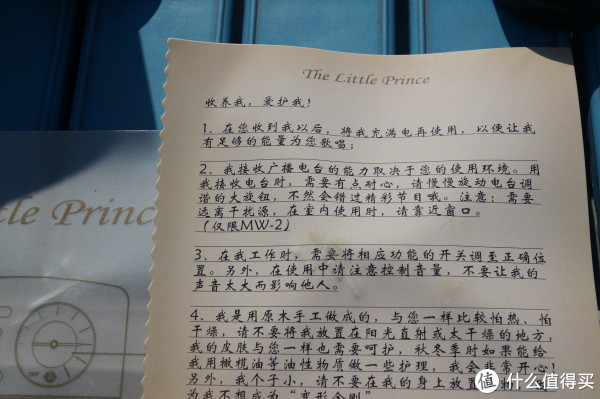 The Little Prince
收养我，爱护我！
1、在您收到我以后，将我充满电再使用，以便让我
有足够的能量为您歌唱；
2、我接收广播电台的能力取决于您的使用环境。用
我接收电台时，需要有点耐心，请慢慢旋动电台调
谐的大旋钮，不然会错过精彩节目哦。注意：需要
远离干扰源，在室内使用时，请靠近窗口。
(仅限MW-2)
3、在我工作时，需要将相应功能的开关调至正确位
置。另外，在使用中请注意控制音量，不要让我的
声音太大而影响他人。
4、我是用原木手工做成的，与您一样比较怕热、怕
干燥，请不要将我放置在阳光直射或太干燥的地方，
我的皮肤与您一样也需要呵护，秋冬季时如果能给
我用橄榄油等油性物质做一些护理，我会非常开心！
另外，我个子小，请不要在我的身上放置
为我不想成为“变形金刚”
ttle Prince
值 什么值得买